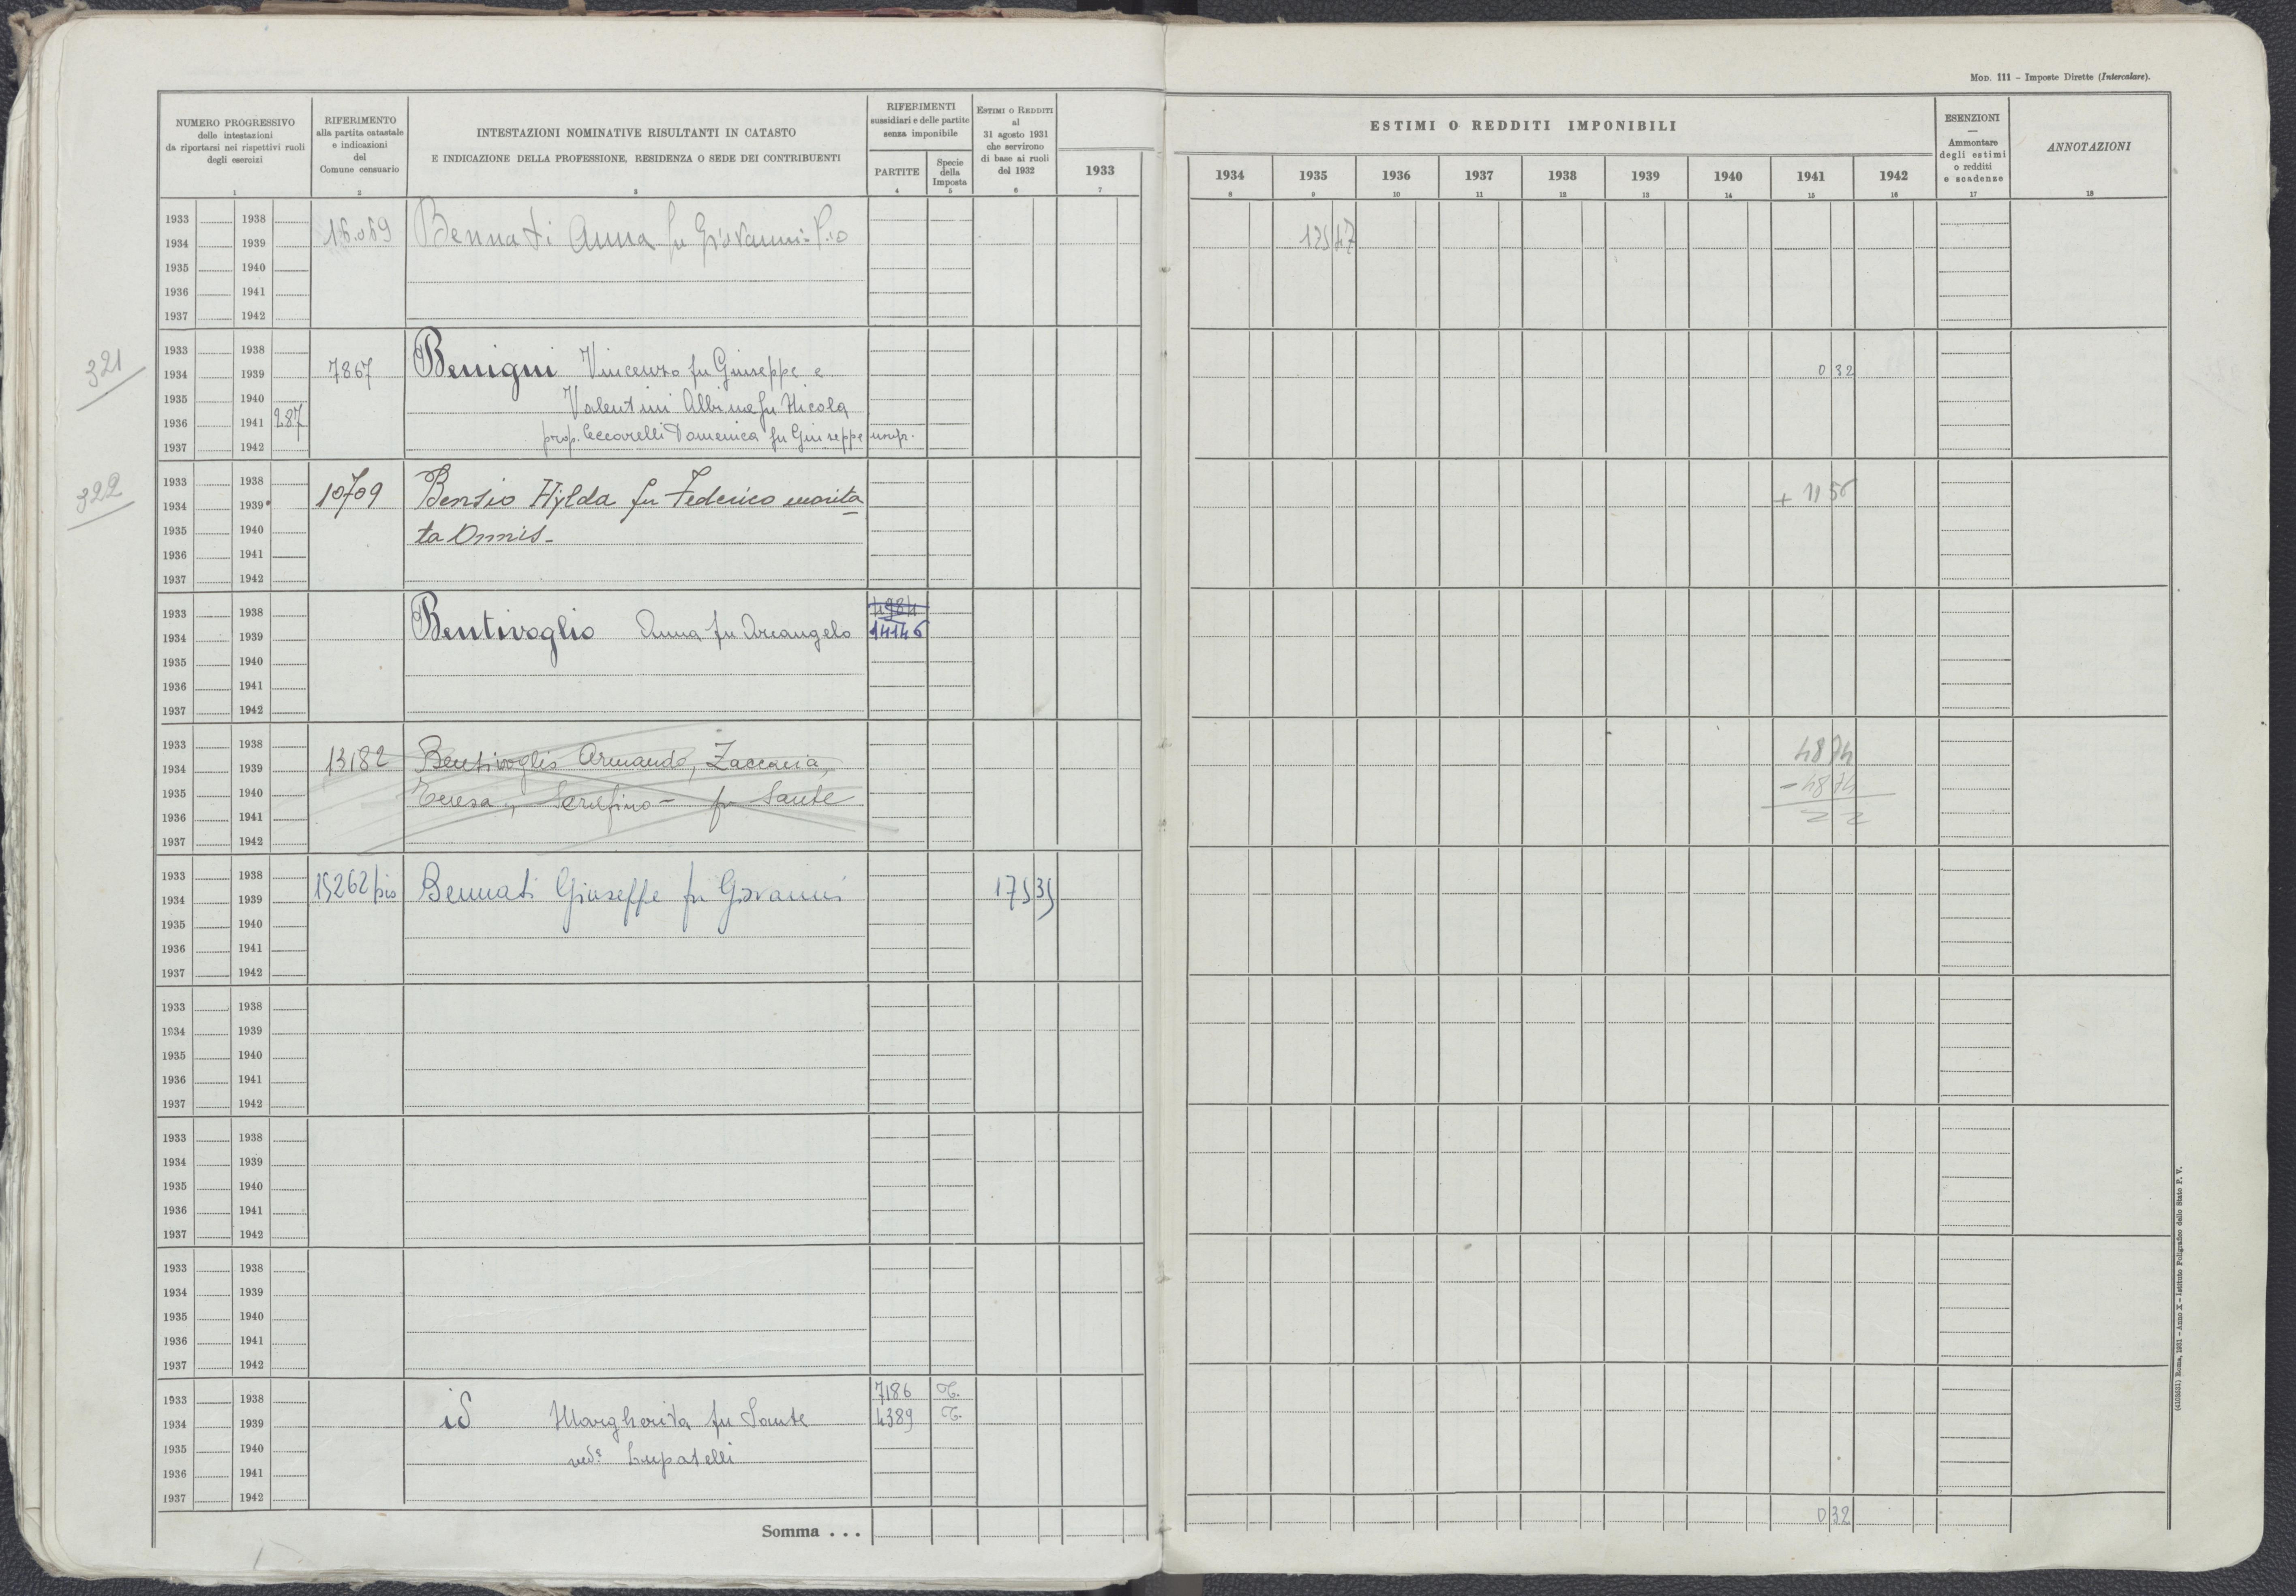 Mod. 111 – Imposte Dirette (Intercalare).
NUMERO PROGRESSIVO
delle intestazioni
da riportarsi nei rispettivi ruoli
degli esercizi
1
RIFERIMENTO
alla partita catastale
e indicazioni
del
Comune censuario
2
INTESTAZIONI NOMINATIVE RISULTANTI IN CATASTO
E INDICAZIONE DELLA PROFESSIONE, RESIDENZA O SEDE DEI CONTRIBUENTI
3
RIFERIMENTI
sussidiari e delle partite
senza imponibile
PARTITE
4
Specie
della
Imposta
5
Estimi o Redditi
al
31 agosto 1931
che servirono
di base ai ruoli
del 1932
6
1933
7
ESTIMI O REDDITI IMPONIBILI
1934 1935 1936 1937 1938 1939 1940 1941 1942
8 9 10 11 12 13 14 15 16
ESENZIONI
—
Ammontare
degli estimi
o redditi
e scadenze
17
ANNOTAZIONI
18
1933 1938
1934 1939 16.069 Bennati Anna fu Giovanni-Pio 125 47
1935 1940
1936 1941
1937 1942
321
1933 1938
1934 1939 7867 Benigni Vincenzo fu Giuseppe e 0 32
1935 1940 Valentini Albina fu Nicola
1936 1941 287
1937 1942 prop. Ceccarelli Domenica fu Giuseppe usufr.
322
1933 1938
1934 1939 10709 Bensio Hylda fu Federico marita + 11 56
1935 1940 ta Omnis-
1936 1941
1937 1942
1933 1938
1934 1939 Bentivoglio Anna fu Arcangelo 14146
1935 1940
1936 1941
1937 1942
1933 1938 48 74
1934 1939 13182 Bentivoglio Armando, Zaccaria,
1935 1940 Teresa, Serafino - fu Sante - 48 74
1936 1941
1937 1942
1933 1938
1934 1939 15262 bis Bennati Giuseppe fu Giovanni 175 35
1935 1940
1936 1941
1937 1942
1933 1938
1934 1939
1935 1940
1936 1941
1937 1942
1933 1938
1934 1939
1935 1940
1936 1941
1937 1942
1933 1938
1934 1939
1935 1940
1936 1941
1937 1942
7186 T.
1933 1938
1934 1939 id Margherita fu Sante 4389 T.
1935 1940
ved. Lupatelli
1936 1941
1937 1942
Somma . . . 0 32
(4102631) Roma, 1931 – Anno X – Istituto Poligrafico dello Stato P. V.